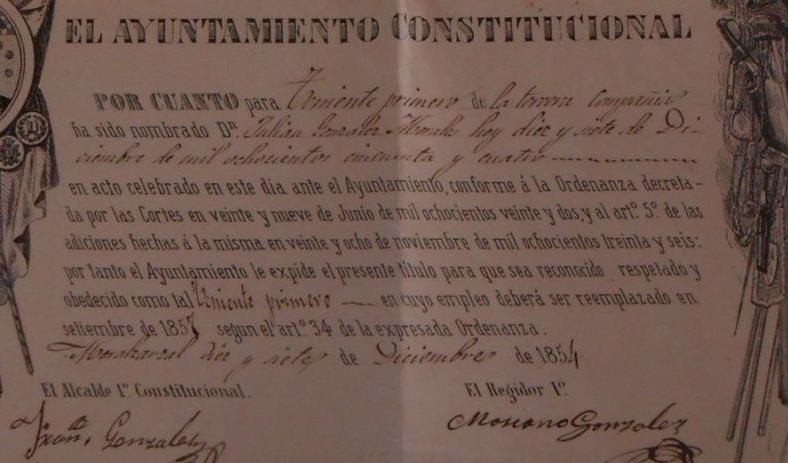 EL AYUNTAMIENTO CONSTITUCIONAL
POR CUANTO para Teniente primero de la tercera Compañia
ha sido nombrado Dn. Julián Gonzalez Morales hoy diez y siete de Di-
ciembre de mil ochocientos cincuenta y cuatro
en acto celebrado en este dia ante el Ayuntamiento, conforme á la Ordenanza decreta-
da por las Cortes en veinte y nueve de Junio de mil ochocientos veinte y dos, y al artº. 5º. de las
adiciones hechas á la misma en veinte y ocho de noviembre de mil ochocientos treinta y seis:
por tanto el Ayuntamiento le expide el presente titulo para que sea reconocido respetado y
obedecido como tal Teniente primero — en cuyo empleo deberá ser reemplazado en
setiembre de 1857 segun el artº. 34 de la expresada Ordenanza.
diez y siete de Diciembre de 1854
El Alcalde 1º. Constitucional. El Regidor 1º.
Gonzalez Mariano Gonzalez